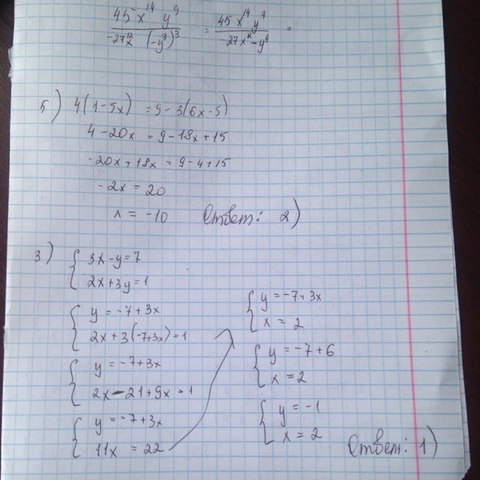 45x¹⁴y⁹ / -27x¹² (-y³)³ = 45x¹⁴y⁹ / -27x¹² -y⁹ =
5) 4(1-5x) = 9-3(6x-5)
4-20x = 9-18x+15
-20x+18x = 9-4+15
-2x = 20
x = -10 Ответ: 2)
3) { 3x-y=7
2x+3y=1
{ y=-7+3x
2x+3(-7+3x)=1
{ y=-7+3x
2x-21+9x=1
{ y=-7+3x
11x = 22
{ y=-7+3x
x = 2
{ y=-7+6
x=2
{ y=-1
x=2
Ответ: 1)